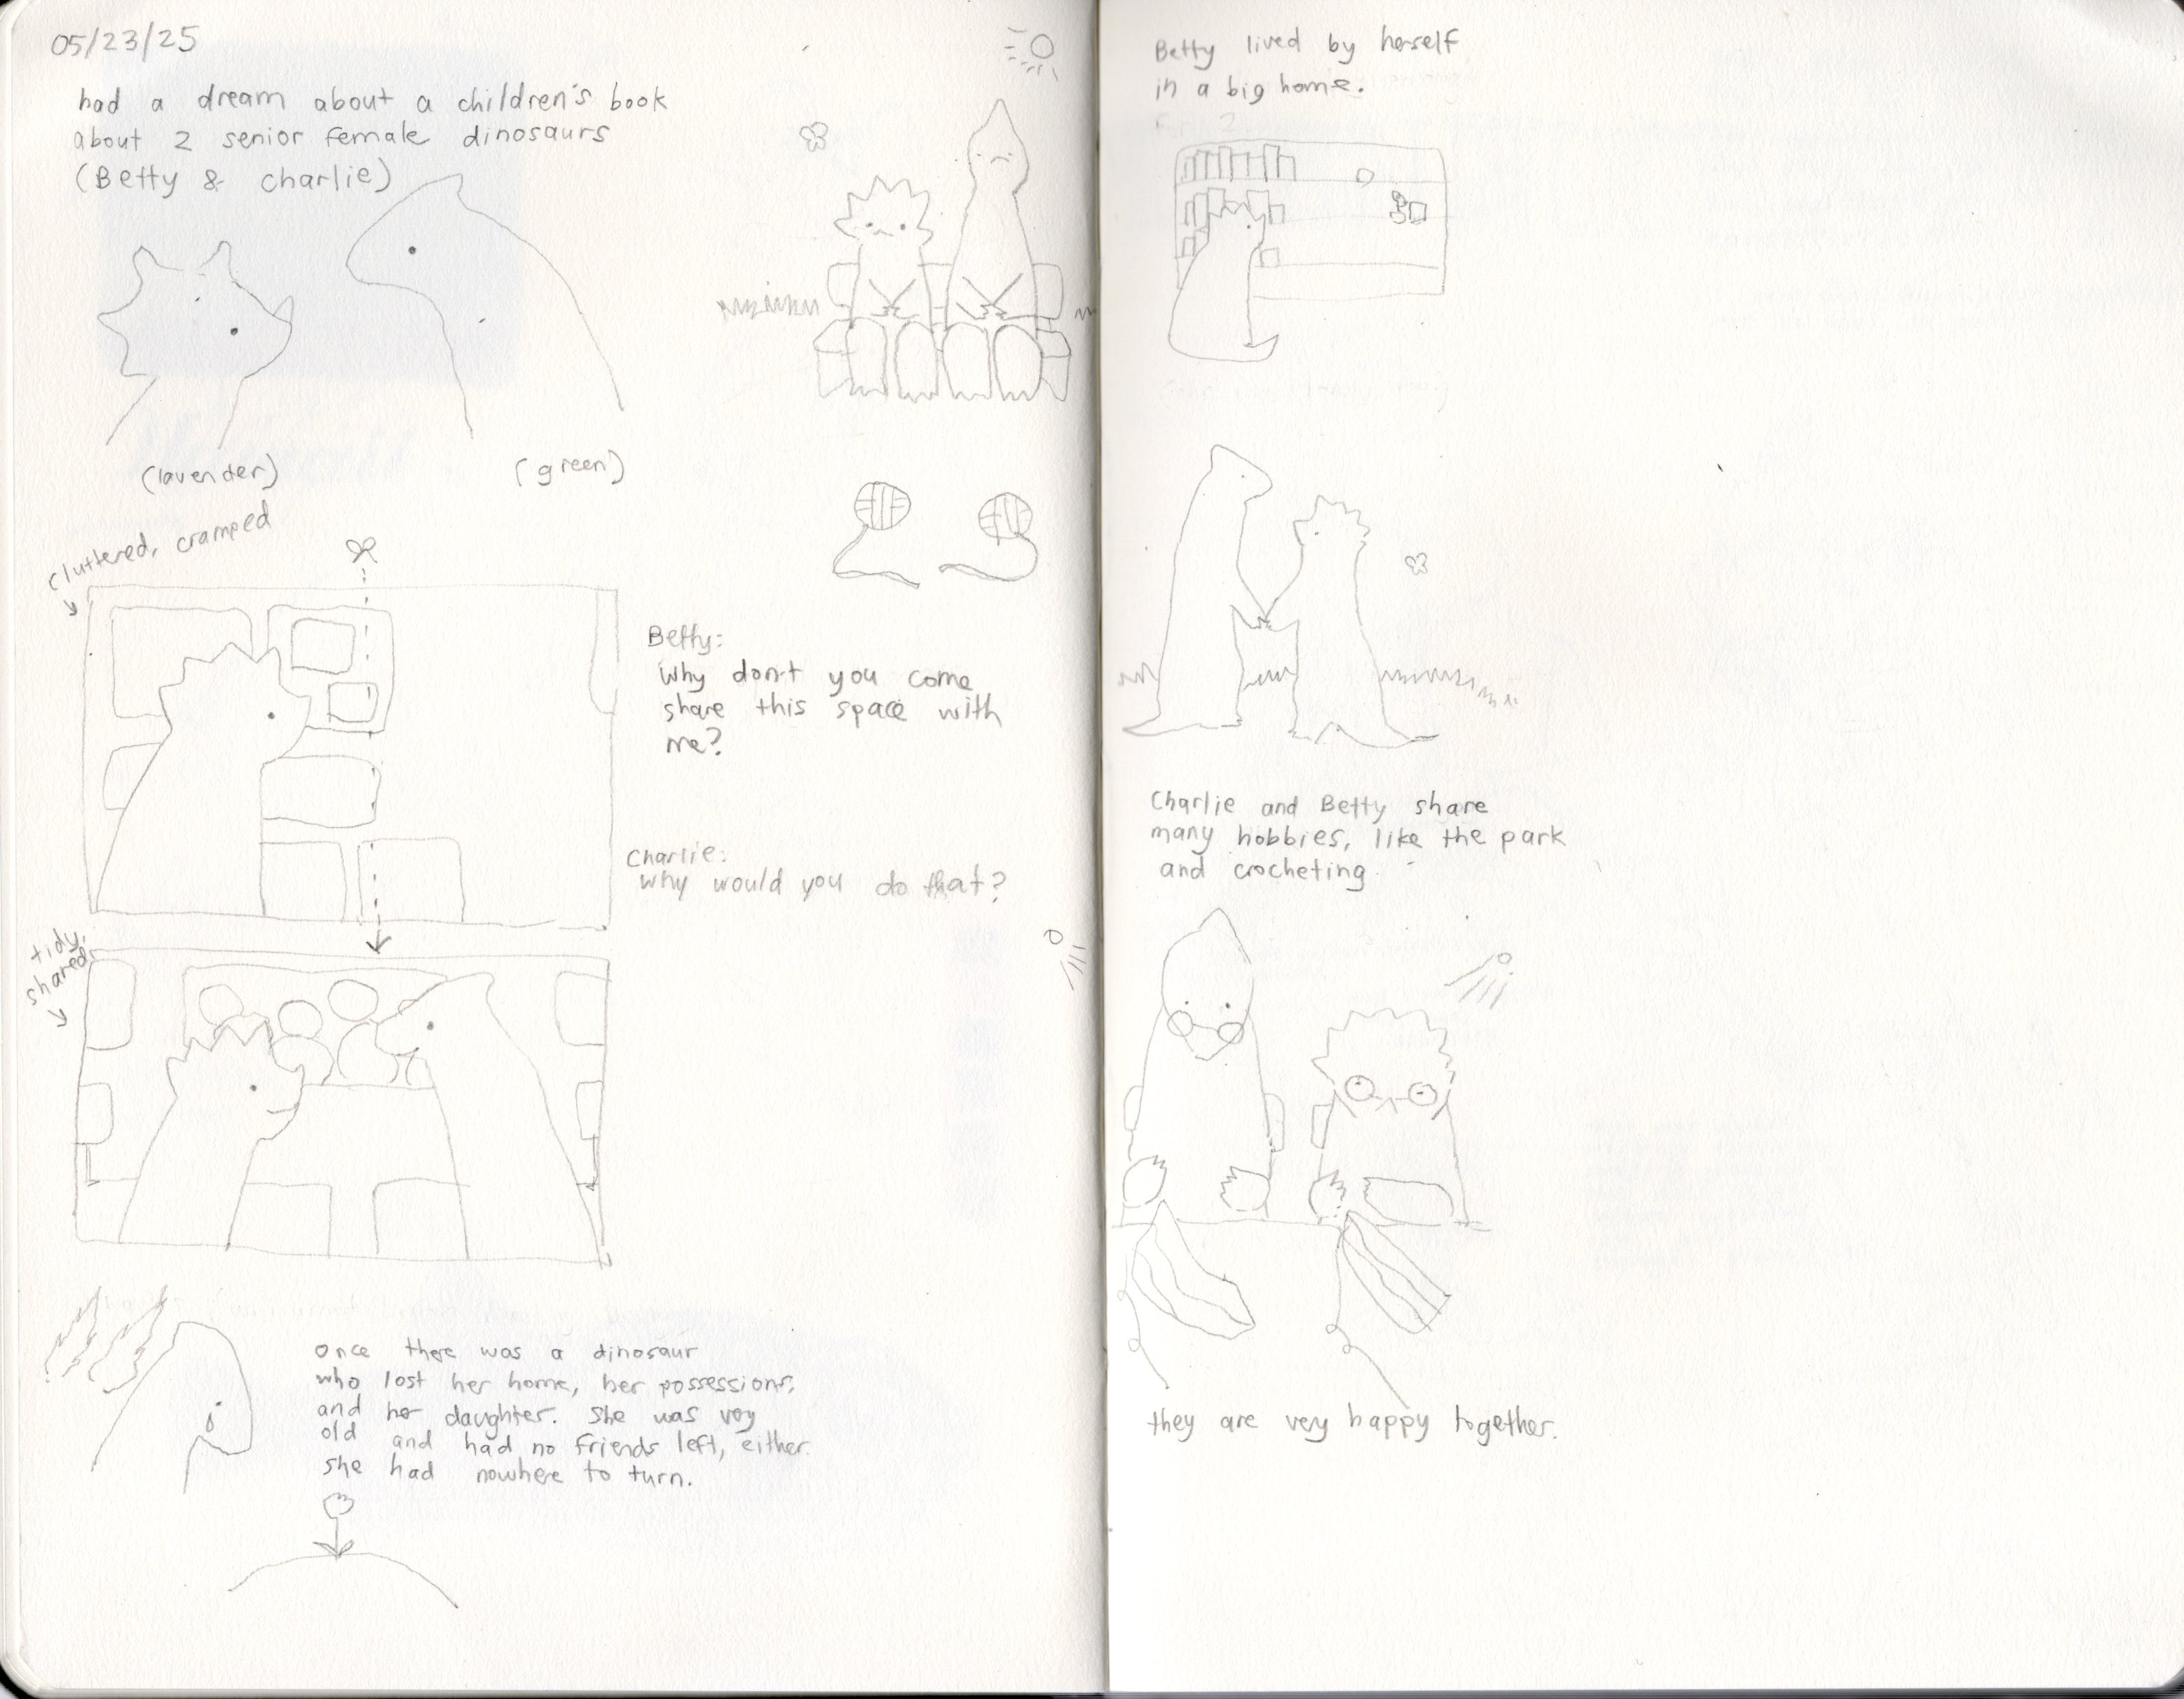 05/23/25
had a dream about a children's book
about 2 senior female dinosaurs
(Betty & charlie)
(lavender)
(green)
cluttered, cramped
Betty:
Why don't you come
share this space with
me?
Charlie:
why would you do that?
tidy,
shared
once there was a dinosaur
who lost her home, her possessions,
and her daughter. She was very
old and had no friends left, either.
She had nowhere to turn.
Betty lived by herself
in a big home.
Charlie and Betty share
many hobbies, like the park
and crocheting.
they are very happy together.